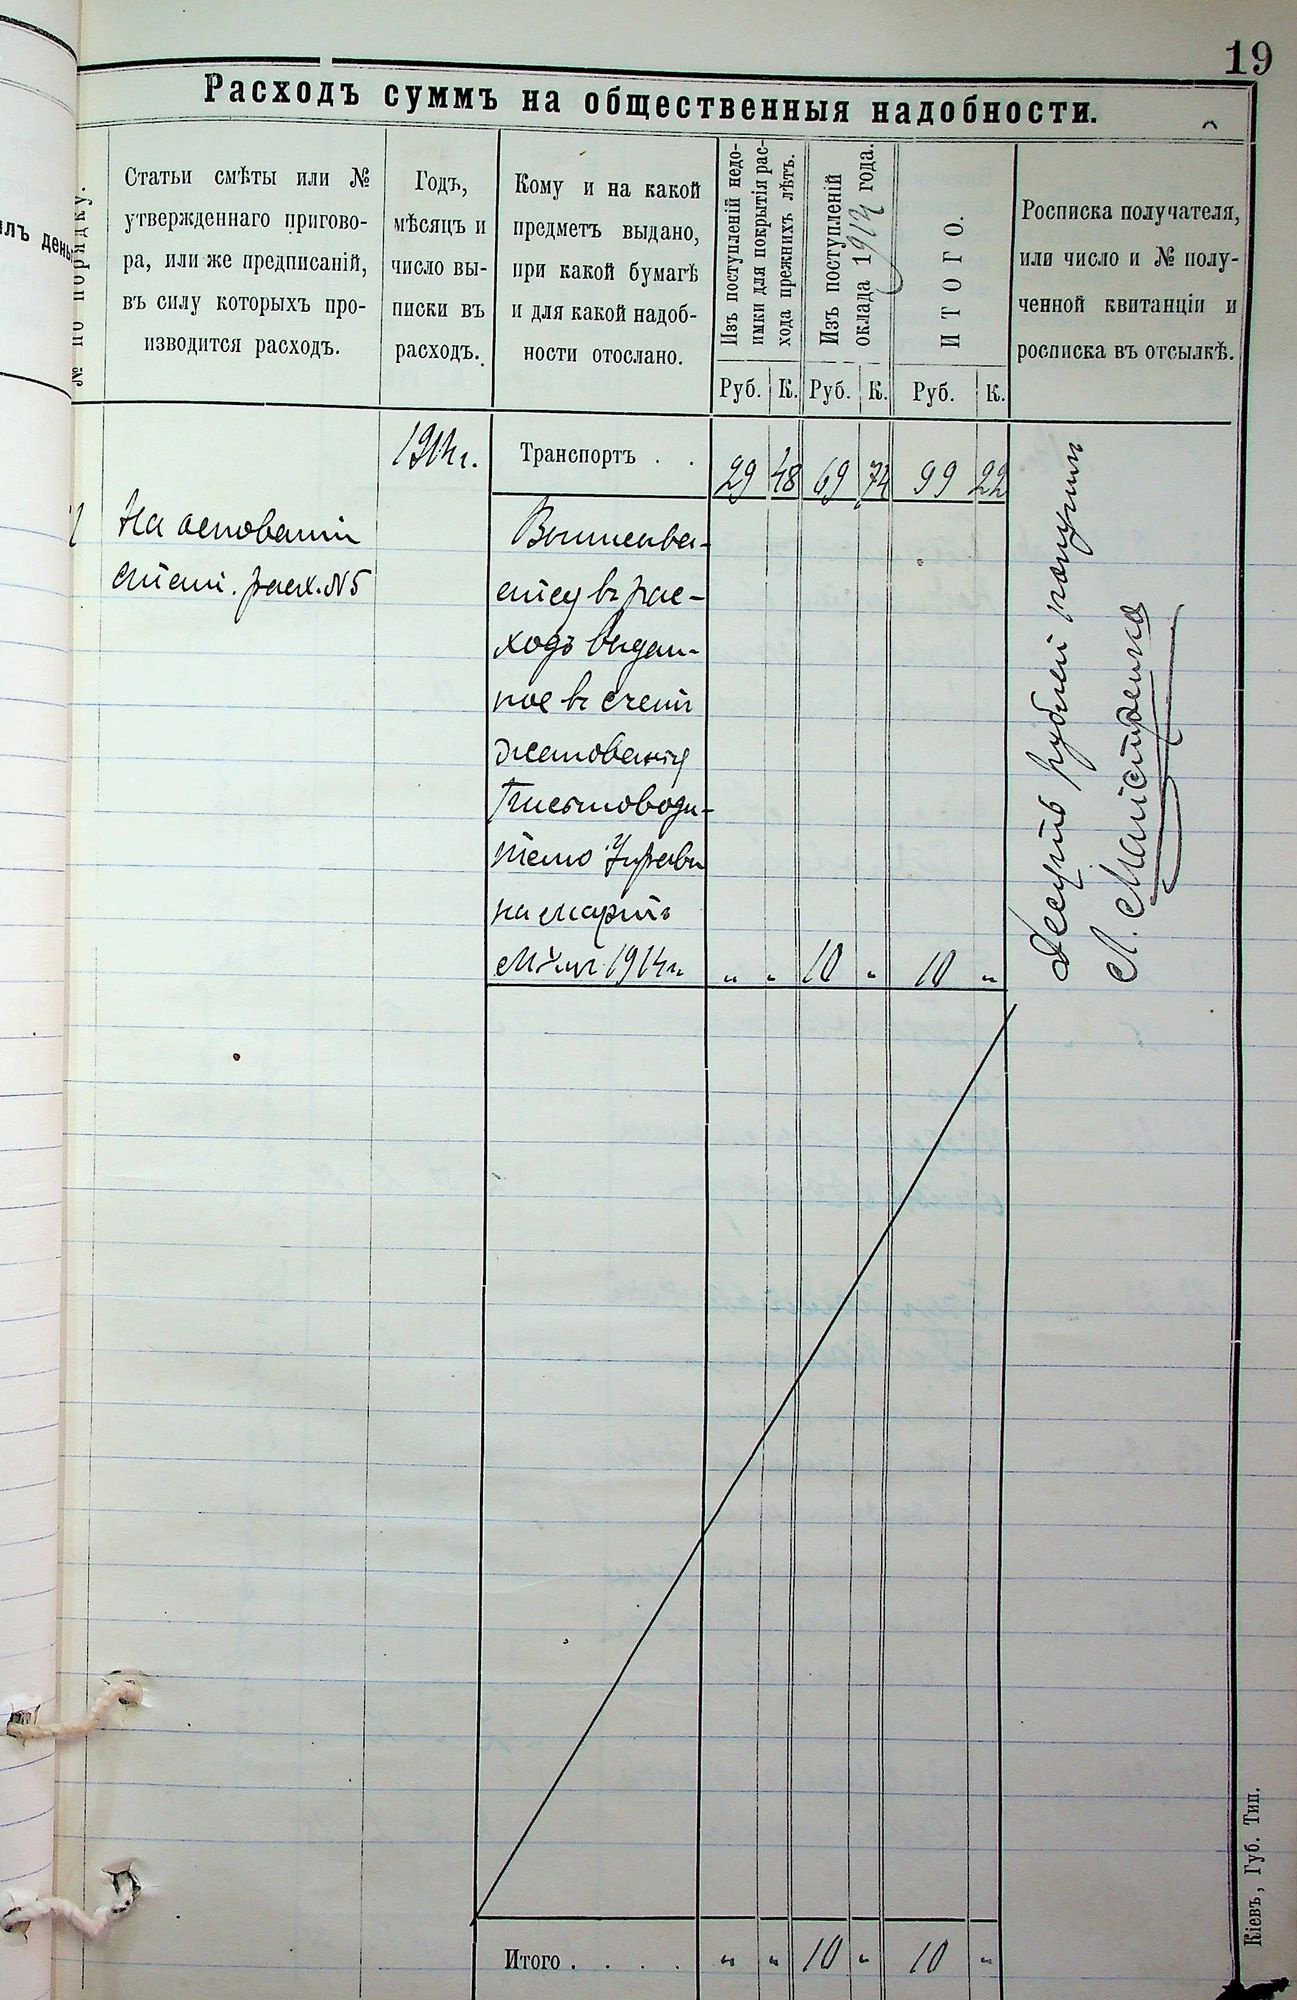 19
Расходъ суммъ на общественныя надобности.
№ по порядку.
Статьи смѣты или №
утвержденнаго пригово-
ра, или же предписаній,
въ силу которыхъ про-
изводится расходъ.
Годъ,
мѣсяцъ и
число вы-
писки въ
расходъ.
Кому и на какой
предметъ выдано,
при какой бумагѣ
и для какой надоб-
ности отослано.
Изъ поступленій недо-
имки для покрытія рас-
хода прежнихъ лѣтъ.
Изъ поступленій
оклада 1914 года.
ИТОГО.
Росписка получателя,
или число и № полу-
ченной квитанціи и
росписка въ отсылкѣ.
Руб. К. Руб. К. Руб. К.
1914 г. Транспортъ . . 29 48 69 74 99 22
На основаніи
стат. расх. №5
Выписыва-
ется въ рас-
ходъ выдан-
ное въ счетъ
жалованія
Письмоводи-
телю Управы
на мартъ
м-цъ 1914 г. „ „ 10 „ 10 „
Десять рублей получилъ
Л. Маістренко
Итого . . . . „ „ 10 „ 10 „
Кіевъ, Губ. Тип.